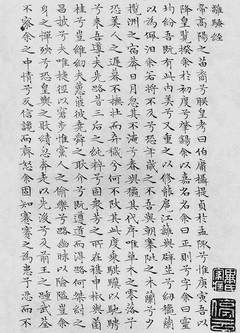 離騷經
帝高陽之苗裔兮朕皇考曰伯庸攝提貞於孟陬兮惟庚寅吾以
降皇覽揆余於初度兮肇錫余以嘉名名余曰正則兮字余曰靈
均紛吾既有此內美兮又重之以脩能扈江離與辟芷兮紉秋蘭
以為佩汨余若將不及兮恐年歲之不吾與朝搴阰之木蘭兮夕
攬洲之宿莽日月忽其不淹兮春與秋其代序惟草木之零落兮
恐美人之遲暮不撫壯而棄穢兮何不改其此度乘騏驥以馳騁
兮來吾導夫先路昔三后之純粹兮固衆芳之所在雜申椒與菌
桂兮豈維紉夫蕙茝彼堯舜之耿介兮既遵道而得路何桀紂之
昌披兮夫唯捷徑以窘步惟黨人之偷樂兮路幽昧以險隘豈余
身之憚殃兮恐皇輿之敗績忽奔走以先後兮及前王之踵武荃
不察余之中情兮反信讒而齌怒余固知謇謇之為患兮忍而不